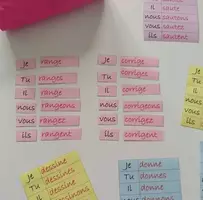 il saute
nous sautons
vous sautez
ils sautent
Je range
Tu ranges
Il range
nous rangeons
vous rangez
ils rangent
Je corrige
Tu corriges
Il corrige
nous corrigeons
vous corrigez
ils corrigent
Je dessine
Tu dessines
Il dessine
dessinons
Je donne
Tu donnes
Il donne
nous donnons